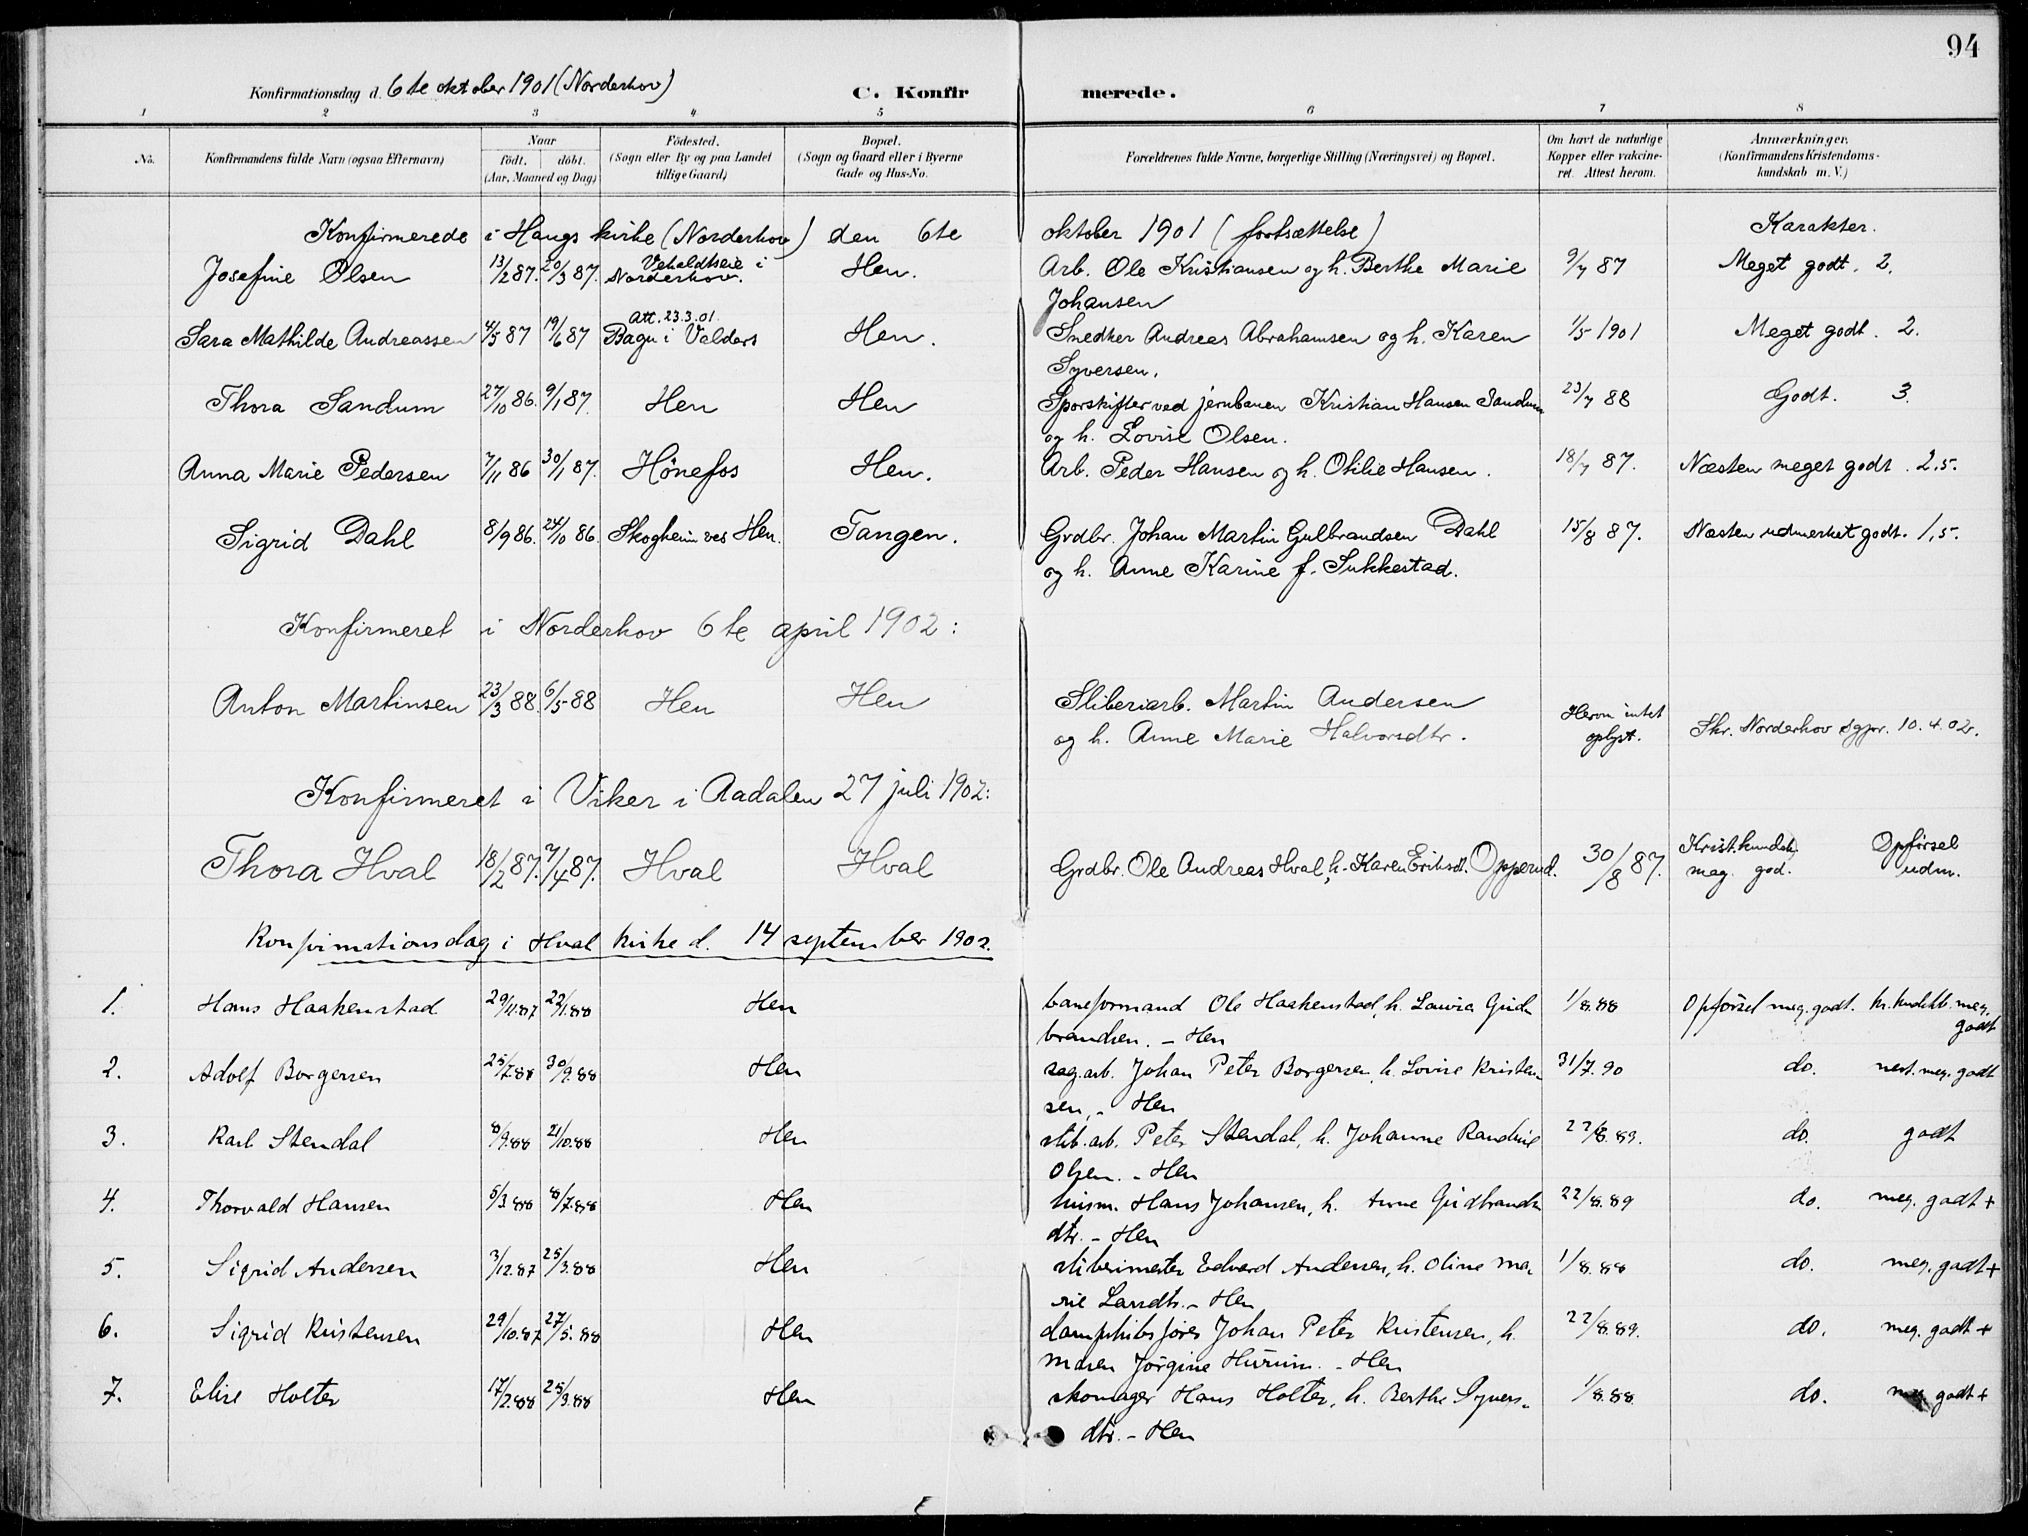 94
Konfirmationsdag d. 6te oktober 1901 (Norderhov)
C. Konfirmerede.
1 2 3 4 5 6 7 8
No.
Konfirmandens fulde Navn (ogsaa Efternavn)
Naar
födt. döbt.
(Aar, Maaned og Dag)
Födested.
(Sogn eller By og paa Landet
tillige Gaard)
Bopæl.
(Sogn og Gaard eller i Byerne
Gade og Hus-No.
Forældrenes fulde Navne, borgerlige Stilling (Næringsvei) og Bopæl.
Om havt de naturlige
Kopper eller vakcine-
ret. Attest herom.
Anmærkninger.
(Konfirmandens Kristendoms-
kundskab m. V.)
Konfirmerede i Haugs kirke (Norderhov) den 6te oktober 1901 (fortsættelse) Karakter.
Josefine Olsen 13/2 87. 20/3 87. Veholdtseie i Norderhov. Hen. Arb. Ole Kristiansen og h. Berthe Marie 9/7 87 Meget godt. 2.
Johansen
Att. 23.3.01.
Sara Mathilde Andreassen 4/5 87 19/6 87 Bagn i Valders Hen. Snedker Andreas Abrahamsen og h. Karen 1/5 1901 Meget godt. 2.
Syversen.
Thora Sandum 27/10 86. 9/1 87. Hen Hen Sporskifter ved jernbanen Kristian Hansen Sandum 23/7 88 Godt. 3.
og h. Lovise Olsen.
Anna Marie Pedersen 7/11 86 30/1 87. Hönefos Hen. Arb. Peder Hansen og h. Othlie Hansen. 18/7 87. Næsten meget godt. 2,5.
Sigrid Dahl 8/9 86. 24/10 86. Skogheim ved Hen. Tangen. Grdbr. Johan Martin Gulbrandsen Dahl 15/8 87. Næsten udmerket godt. 1,5.
og h. Anne Karine f. Sukkestad.
Konfirmeret i Norderhov 6te april 1902:
Anton Martinsen 23/3 88. 6/5 88 Hen Hen Sliberiarb. Martin Andersen
og h. Anne Marie Halvorsdtr. Herom intet oplyst. Skr. Norderhov sgpr. 10.4.02.
Konfirmeret i Viker i Aadalen 27 juli 1902:
Thora Hval 18/2 87. 7/4 87. Hval Hval Grdbr. Ole Andreas Hval, h. Karen Eriksdt. Opperud. 30/8 87. Krist.kundsk. meg. god. Opførsel udm.
Konfirmationsdag i Hval kirke d. 14 september 1902.
1. Hans Haakenstad 29/11.87 22/1.88 Hen baneformand Ole Haakenstad, h. Lovisa Gud- 1/8.88 Opførsel meg. godt. kr. kundsk. meg. godt
brandsen. - Hen
2. Adolf Borgersen 25/7.88 30/9.88 Hen sag.arb. Johan Peter Borgersen, h. Lovise Kristen- 31/7.90 do. nest. meg. godt
sen, - Hen
3. Karl Stendal 8/9.88 21/10.88 Hen slib.arb. Peter Stendal, h. Johanne Randine 22/8.89. do. godt
Olsen. - Hen
4. Thorvald Hansen 5/3.88 8/7.88 Hen husm. Hans Johansen, h. Anne Gudbrands- 22/8.89 do. meg. godt +
dtr. - Hen
5. Sigrid Andersen 3/12.87 25/3.88 Hen slibermester Edvard Andersen, h. Oline Ma- 1/8.88 do. meg. godt +
rie Larsdtr. - Hen
6. Sigrid Kristensen 29/10.87 27/5.88 Hen dampskibsförer Johan Peter Kristensen, h. 22/8.89. do. meg. godt +
Maren Jörgine Hurum. - Hen
7. Elise Holter 17/2.88 25/3.88 Hen skomager Hans Holter, h. Berthe Syvers- 1/8.88. do. meg. godt +
dtr. - Hen